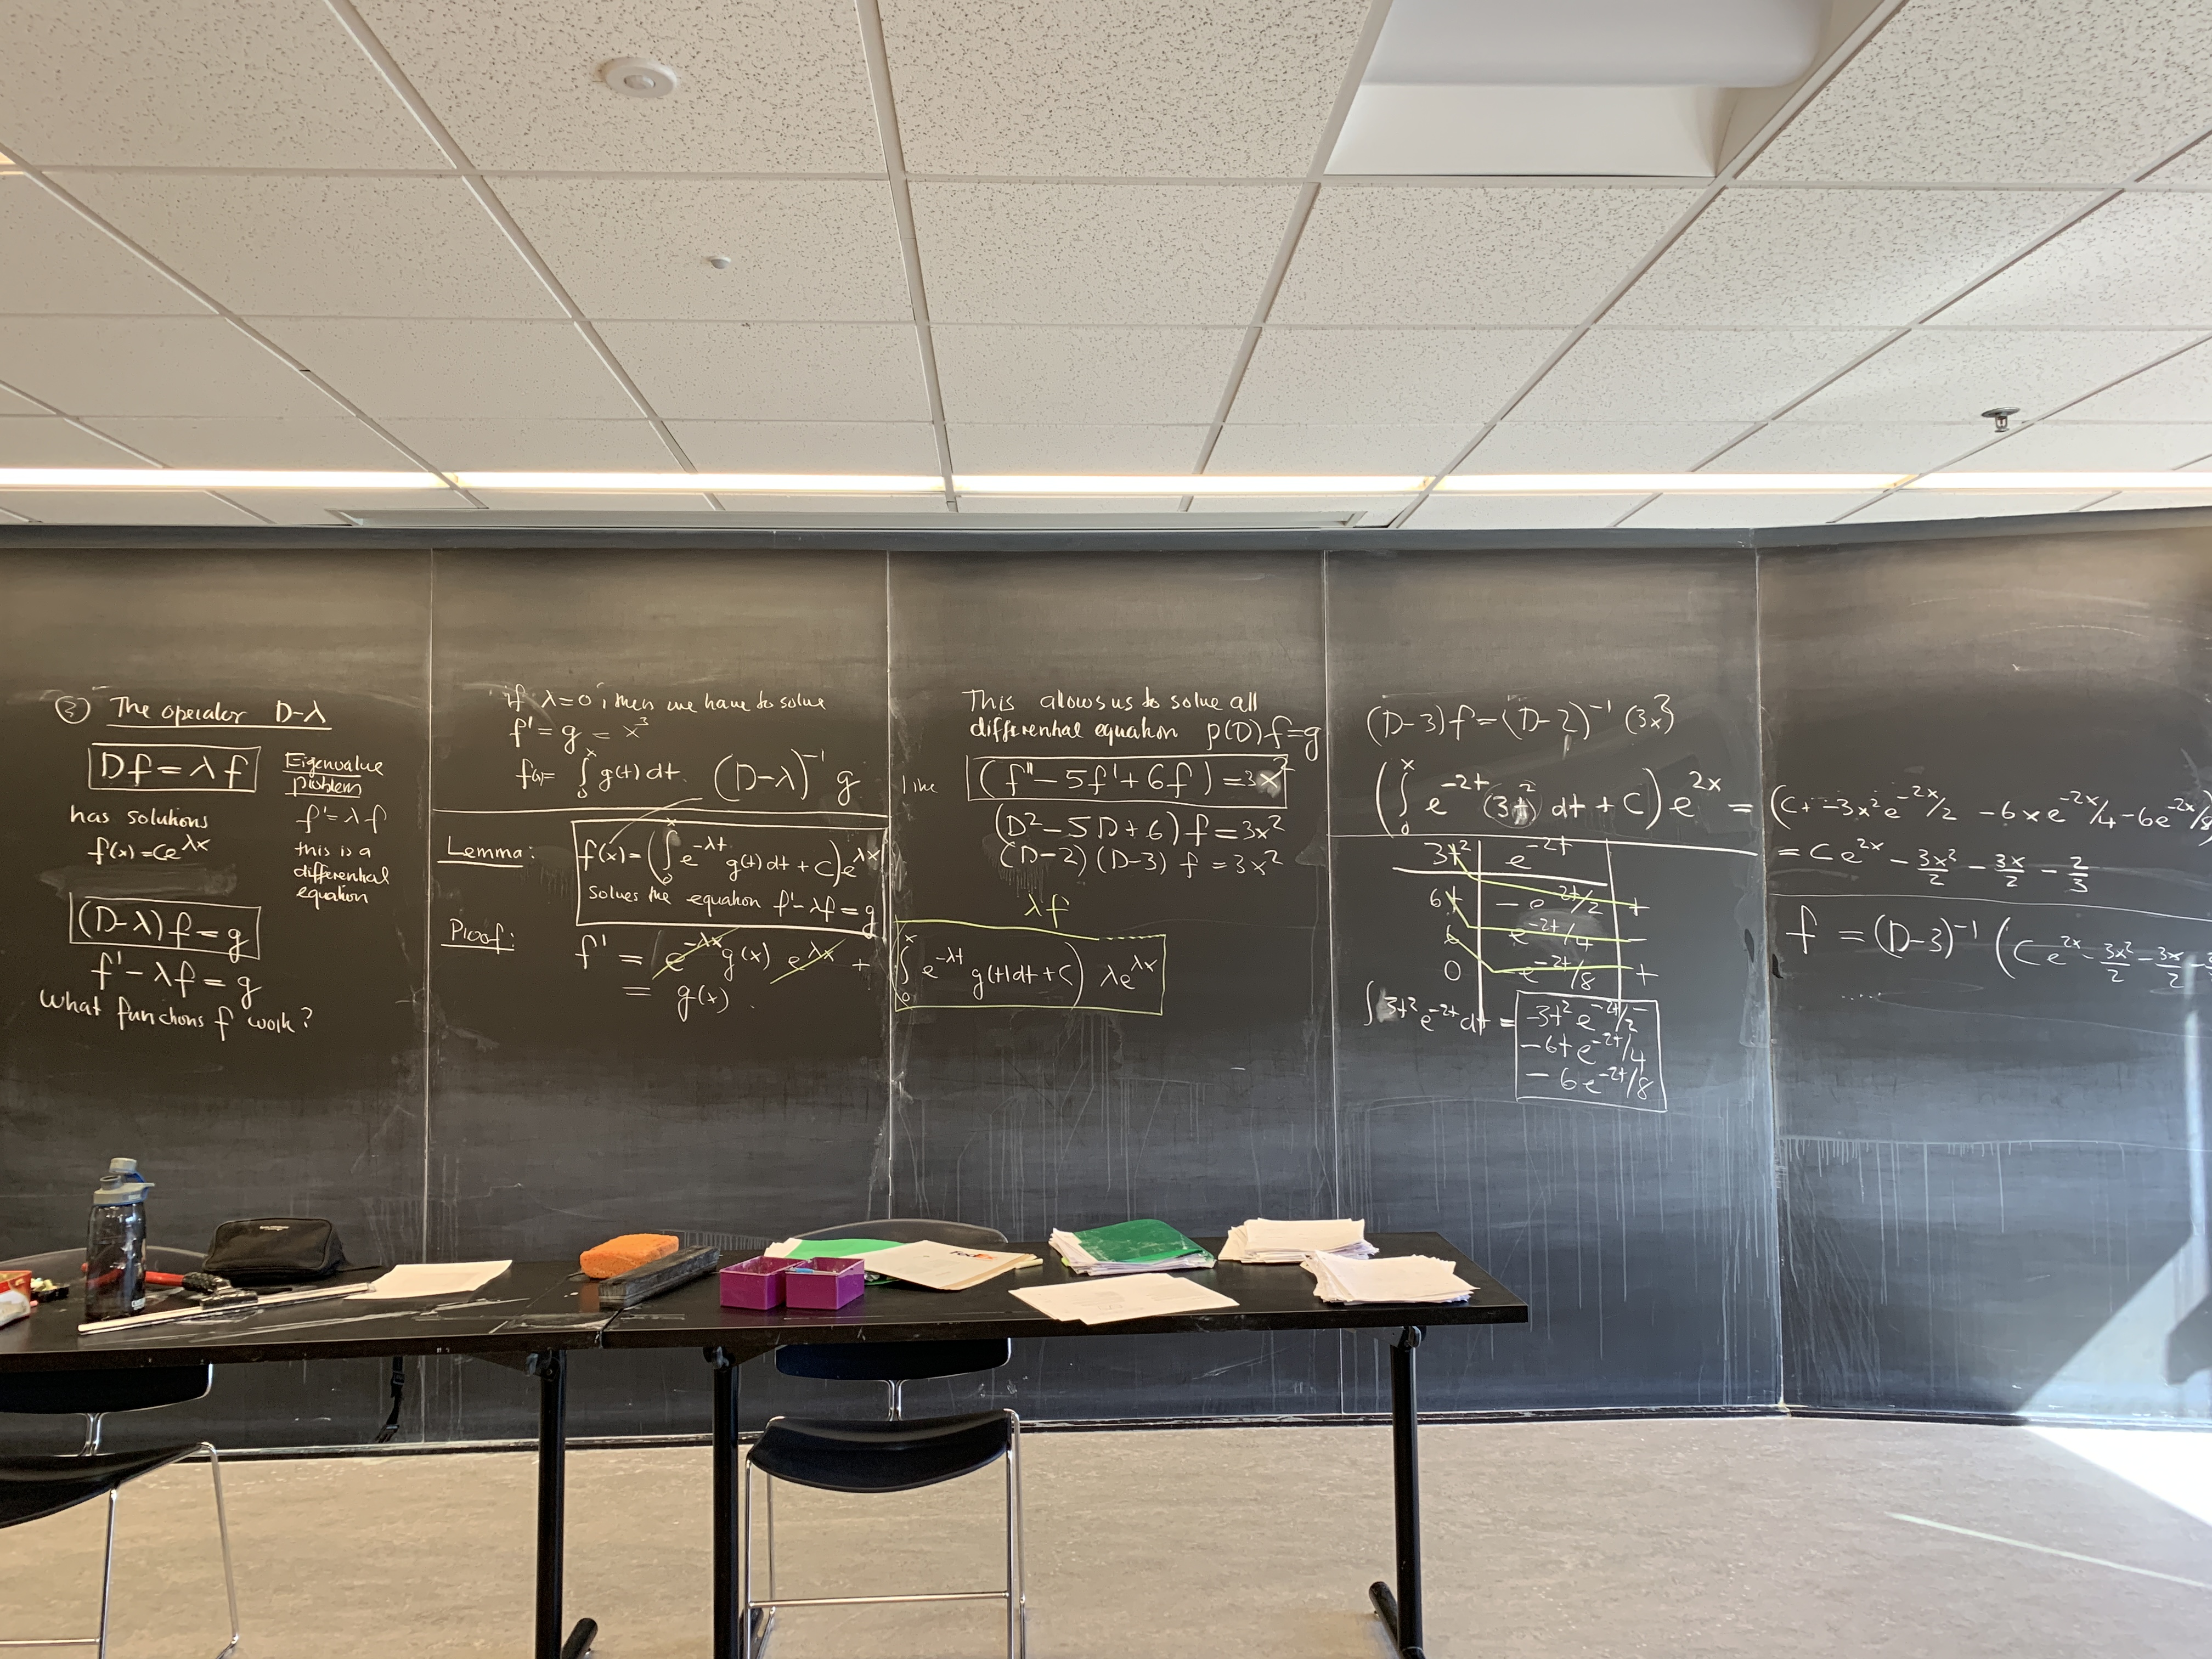 ② The operator D-λ
Df = λf
has solutions
f(x) = Ce^{λx}
Eigenvalue
problem
f' = λf
this is a
differential
equation
(D-λ)f = g
f' - λf = g
What functions f work?
if λ=0, then we have to solve
f' = g = x³
f(x) = ∫₀ˣ g(t) dt. (D-λ)⁻¹ g
Lemma: f(x) = (∫₀ˣ e^{-λt} g(t) dt + C) e^{λx}
Solves the equation f' - λf = g
λf
Proof: f' = e^{-λx} g(x) e^{λx} + ∫₀ˣ e^{-λt} g(t) dt + C) λe^{λx}
= g(x)
This allows us to solve all
differential equation p(D)f = g
like (f'' - 5f' + 6f) = 3x²
(D² - 5D + 6) f = 3x²
(D-2)(D-3) f = 3x²
(D-3)f = (D-2)⁻¹ (3x²)
(∫₀ˣ e^{-2t} (3t²) dt + C) e^{2x} = (C + -3x² e^{-2x}/2 - 6x e^{-2x}/4 - 6e^{-2x}/8
= C e^{2x} - 3x²/2 - 3x/2 - 2/3
3t² e^{-2t}
6t -e^{-2t}/2 +
6 e^{-2t}/4 -
0 -e^{-2t}/8 +
∫ 3t² e^{-2t} dt = -3t² e^{-2t}/2
-6t e^{-2t}/4
- 6e^{-2t}/8
f = (D-3)⁻¹ (C e^{2x} - 3x²/2 - 3x/2 -
.....
FedEx